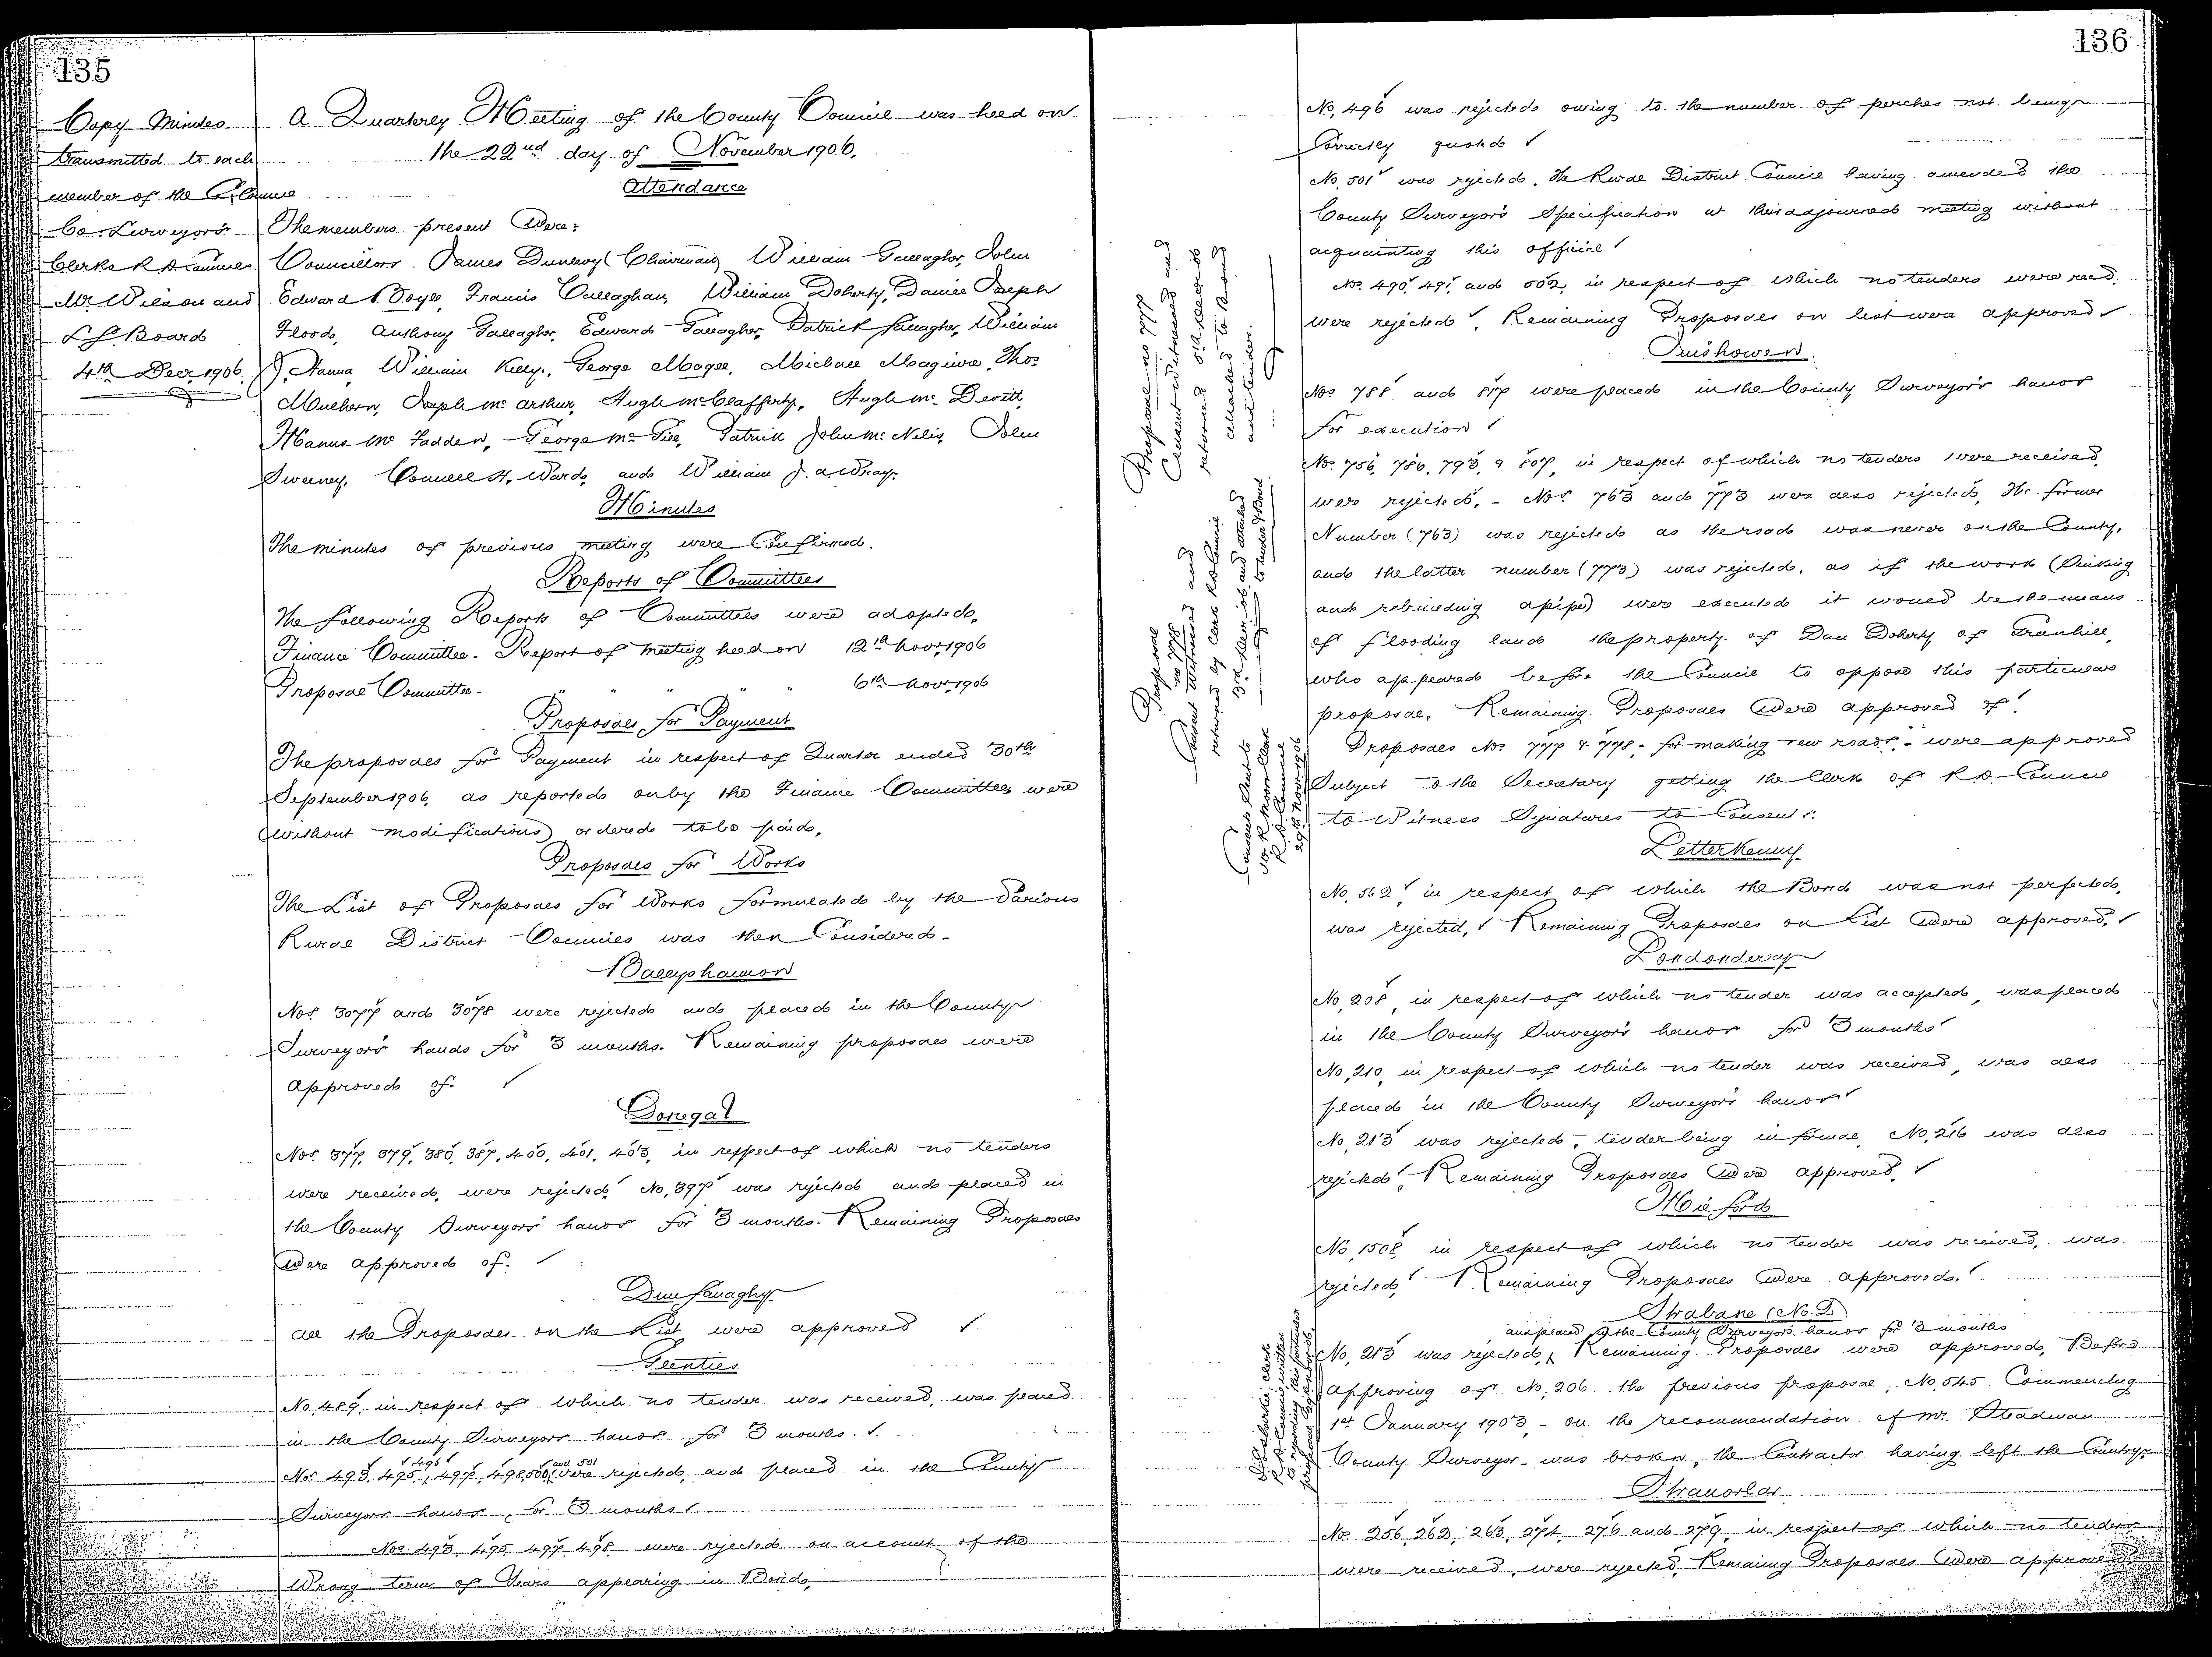 135
Copy Minutes
transmitted to each
member of the Co. Council
Co. Surveyors
Clerks R D Councils
Mr Wilson and
L G Board
4th Decr 1906
A Quarterly Meeting of the County Council was held on
the 22nd day of November 1906.
Attendance
The members present were:
Councillors James Dunlevy (Chairman) William Gallagher, John
Edward Boyle, Francis Callaghan, William Doherty, Daniel Joseph
Flood, Anthony Gallagher, Edward Gallagher, Patrick Gallagher, William
J. Hanna, William Kelly, George Magee, Michael Maguire, Thos
Mulhern, Joseph Mc Arthur, Hugh McClafferty, Hugh Mc Devitt,
Manus Mc Fadden, George Mc Gee, Patrick John Mc Nelis, John
Sweeney, Connell H. Ward, and William J. A. Wray.
Minutes
The minutes of previous meeting were Confirmed.
Reports of Committees
The following Reports of Committees were adopted.
Finance Committee - Report of meeting held on 12th Novr 1906
Proposal Committee - " " " " " 6th Novr 1906
Proposals for Payment
The proposals for Payment in respect of Quarter ended 30th
September 1906, as reported on by the Finance Committee, were
(without modifications) ordered to be paid.
Proposals for Works
The List of Proposals for Works formulated by the Various
Rural District Councils was then Considered-
Ballyshannon
Nos 3077 and 3078 were rejected and placed in the County
Surveyor's hands for 3 months. Remaining proposals were
approved of. ✓
Donegal
Nos 377, 379, 380, 387, 400, 401, 403, in respect of which no tenders
were received, were rejected. No. 397 was rejected and placed in
the County Surveyors' hands for 3 months. Remaining Proposals
were approved of. ✓
Dunfanaghy
All the Proposals on the List were approved ✓
Glenties
No. 489, in respect of which no tender was received, was placed
in the County Surveyors hands for 3 months. ✓
Nos 493, 495, 496, 497, 498, 500, and 501 were rejected, and placed in the County
Surveyors hands, for 3 months ✓
Nos 493, 495, 497, 498 were rejected on account of the
Wrong term of Years appearing in Bond,
136
No. 496 was rejected owing to the number of perches not being
Correctly quoted ✓
No. 501 was rejected. The Rural District Council having amended the
County Surveyor's Specification at their adjourned meeting without
acquainting this office ✓
Nos. 490, 491, and 502, in respect of which no tenders were recd,
were rejected ✓. Remaining Proposals on list were approved ✓
Inishowen.
Nos 788 and 817 were placed in the County Surveyor's hands
for execution ✓
Nos. 756, 786, 793, & 807, in respect of which no tenders were received,
were rejected. - Nos. 763 and 773 were also rejected, the former
Number (763) was rejected as the road was never on the County,
and the latter number (773) was rejected, as if the work (Sinking
and rebuilding a pipe) were executed it would be the means
of flooding lands the property of Dan Doherty of
who appeared before the Council to oppose this particular
proposal. Remaining Proposals were approved of ✓
Proposals Nos 777 & 778 - for making new roads - were approved
Subject to the Secretary getting the Clerk of R. D. Council
to Witness Signatures to Consents.
Proposal no 777
Consent witnessed and
returned 5th Decr 06
attached to Bond
and tender.
Proposal
no 778
Consent witnessed and
returned by Clerk R D Council
3rd Decr 06, and attached
to tender & Bond.
Consents sent to
Clerk
R. D. Council
29th Novr 1906
Letterkenny
No. 562, in respect of which the Bond was not perfected,
was rejected, ✓ Remaining Proposals on List were approved. ✓
Londonderry
No. 208, in respect of which no tender was accepted, was placed
in the County Surveyor's hands for 3 months ✓
No. 210, in respect of which no tender was received, was also
placed in the County Surveyor's hands ✓
No. 213 was rejected, tender being informal, No. 216 was also
rejected ✓. Remaining Proposals were approved. ✓
Milford
No 1508, in respect of which no tender was received, was
rejected ✓ Remaining Proposals were approved. ✓
Strabane (No. 2)
and placed in the County Surveyor's hands for 3 months
No. 213 was rejected, Remaining Proposals were approved. Before
approving of No. 206 the previous proposal, No. 545 Commencing
1st January 1903 - on the recommendation of Mr. Steadman
County Surveyor - was broken, the Contractor having left the Country.
Stranorlar
Nos 256, 262, 263, 274, 276 and 279, in respect of which no tenders
were received, were rejected. Remaing Proposals were approved